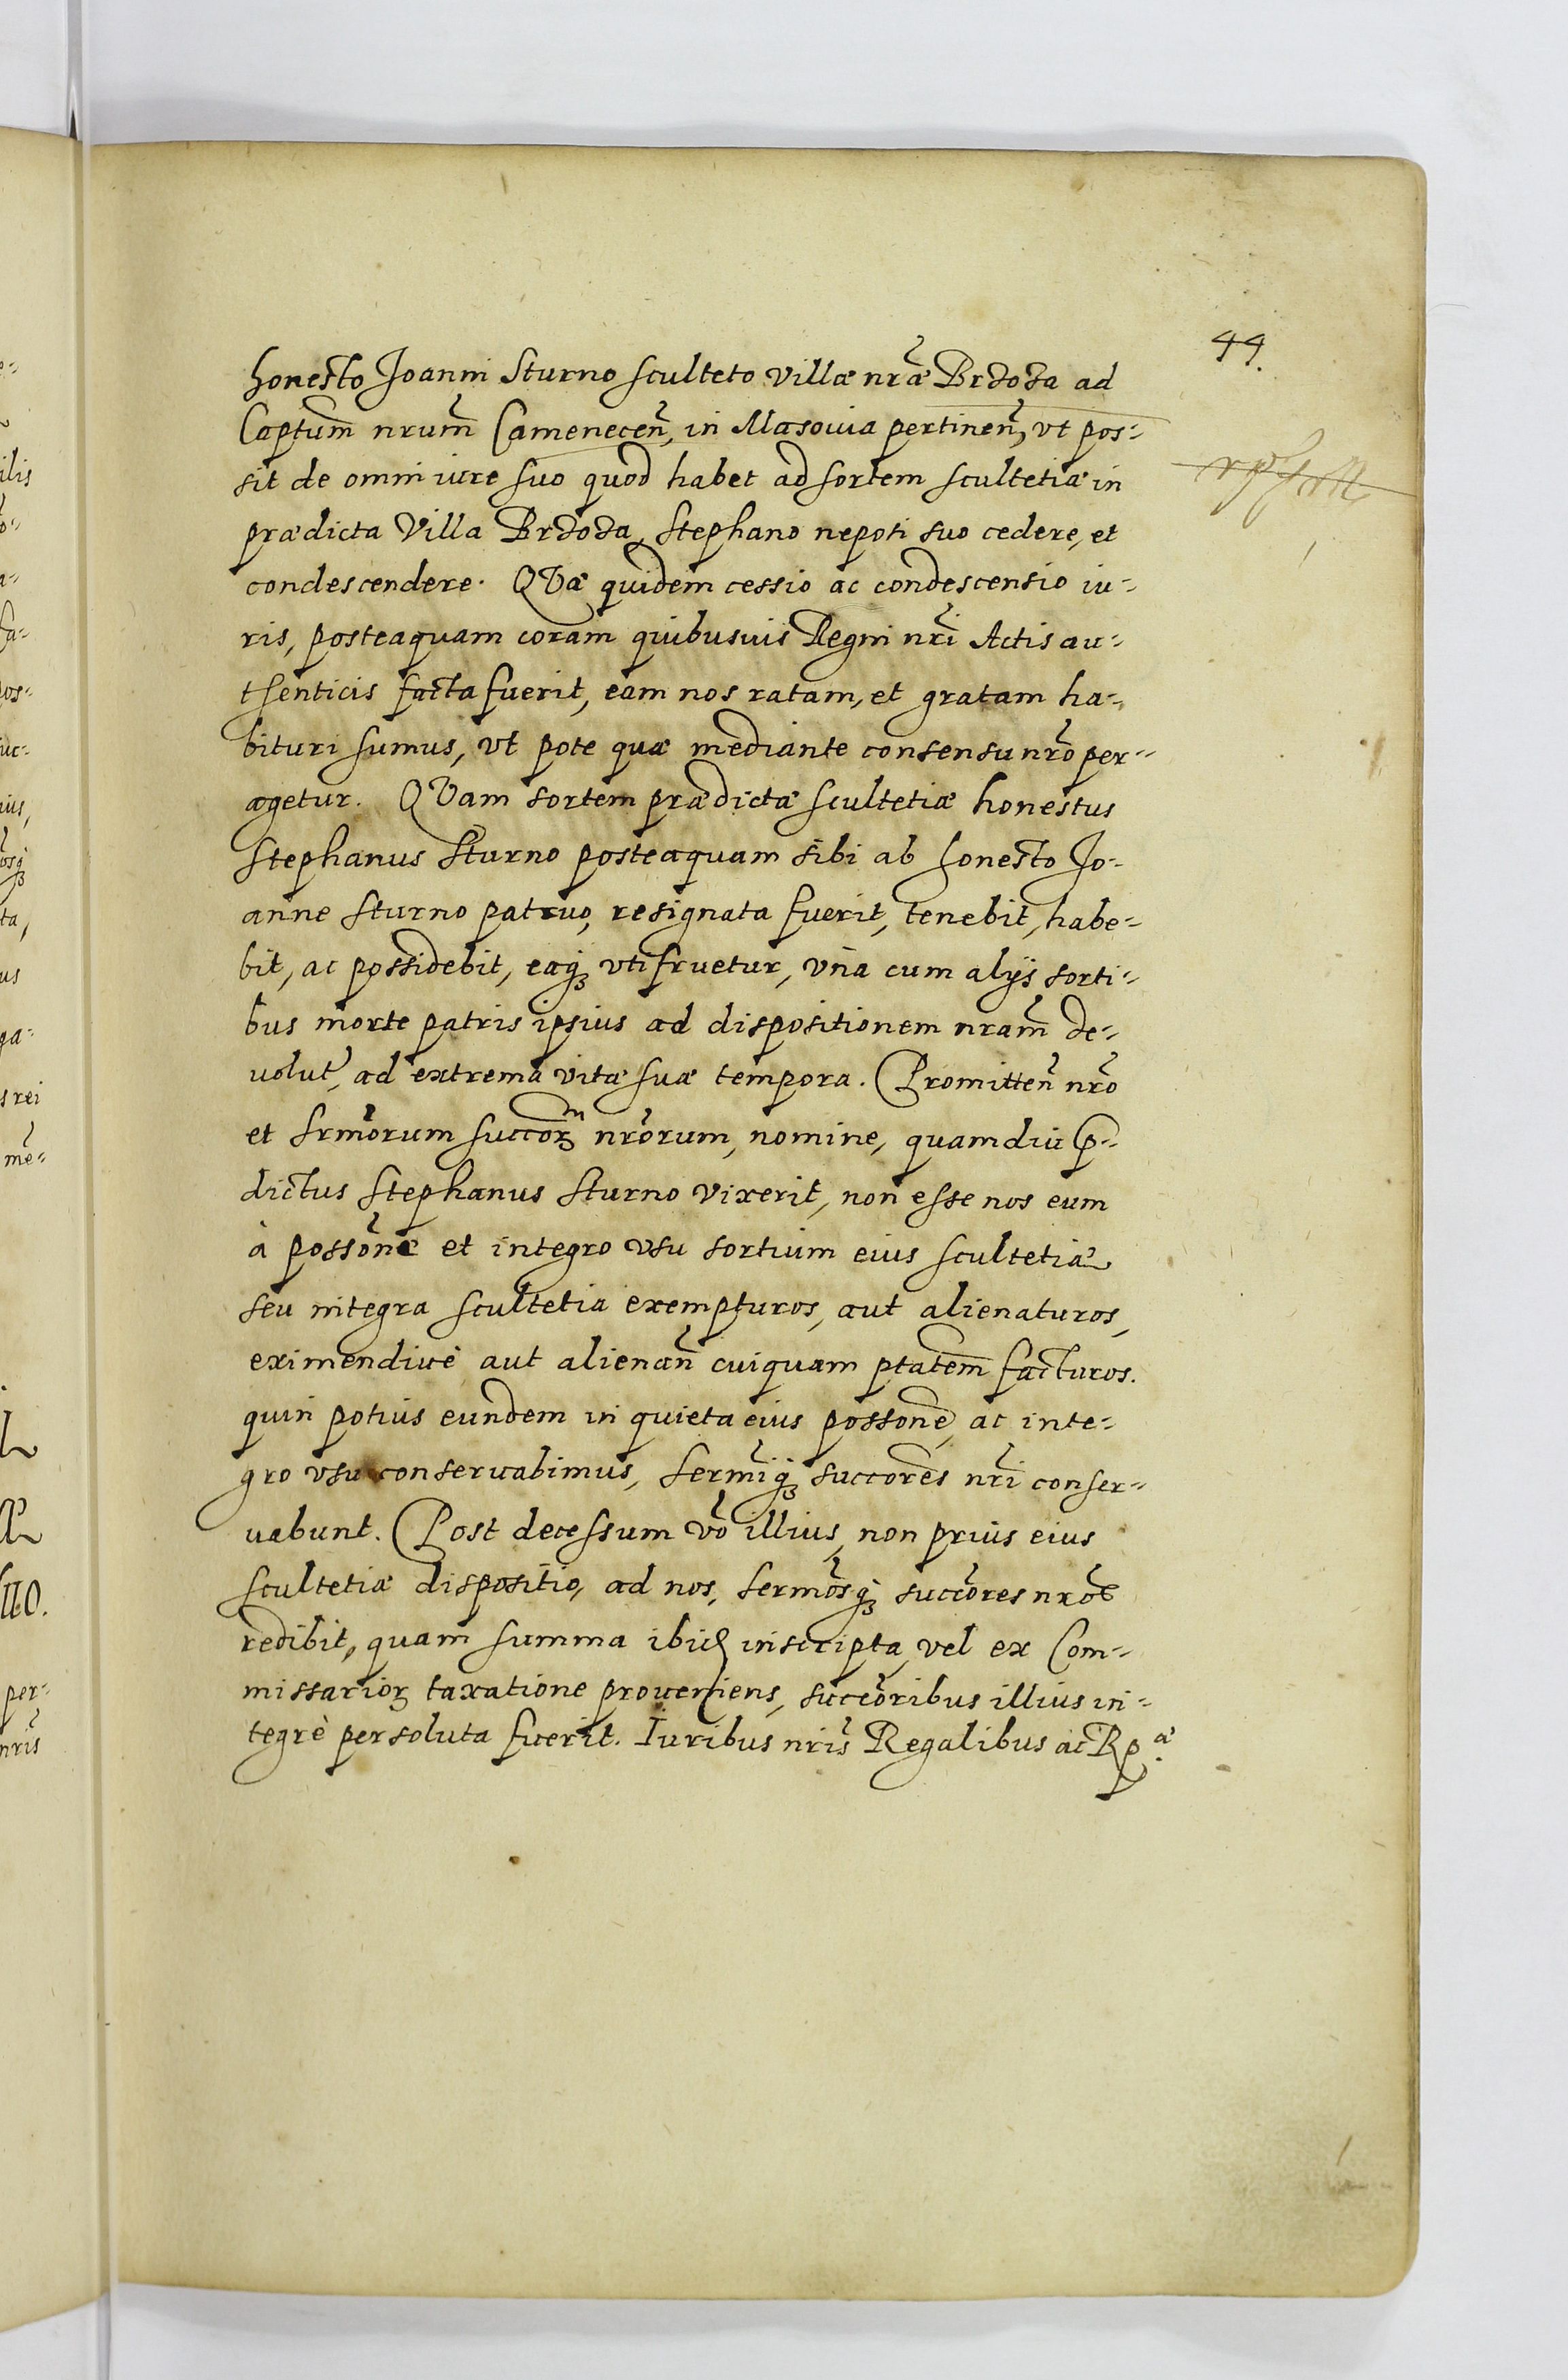 44.
honesto Joanni Sturno sculteto villæ nr̃æ Brzoza ad
Captum̃ nrum̃ Camenecen̄, in Masouia pertinen̄, vt pos-
sit de omni iure suo quod habet ad sortem scultetiæ in
prædicta Villa Brzoza, Stephano nepoti suo cedere, et
condescendere. QVæ quidem cessio ac condescensio iu-
ris, posteaquam coram quibusuis Regni nr̃i Actis au-
thenticis facta fuerit, eam nos ratam, et gratam ha-
bituri sumus, vt pote quæ mediante consensu nr̃o per-
agetur. QVam sortem prædictæ scultetiæ honestus
Stephanus Sturno posteaquam sibi ab honesto Jo-
anne Sturno patruo, resignata fuerit, tenebit, habe-
bit, ac possidebit, eaqꝫ vtifruetur, vna cum alijs sorti-
bus morte patris ipsius ad dispositionem nram̃ de-
volut̃, ad extrema vitæ suæ tempora. Promitten̄ nr̃o
et Srmõrum succorꝫ nrõrum, nomine, quamdiu p̄-
dictus Stephanus Sturno vixerit, non esse nos eum
à possõne et integro vsu sortium eius scultetiæ
seu integra scultetia exempturos, aut alienaturos,
eximendiuè aut alienan̄ cuiquam ptatem̃ facturos.
quin potius eundem in quieta eius possone, ac inte-
gro vsu conseruabimus, Sermiq̃ꝫ succores nr̃i conser-
uabunt. Post decessum võ illius, non prius eius
scultetiæ dispositio, ad nos, sermõsqꝫ succõres nrõs
redibit, quam summa ibid inscripta, vel ex Com-
missariorꝫ taxatione proueniens, succõribus illius in-
tegrè persoluta fuerit. Iuribus nris̃ Regalibus ac Rpᵃ.